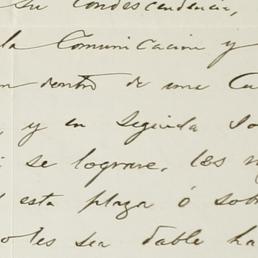 su condescendencia,
la Comunicacion y
dentro de una Cu
y en seguida so
se lograre, les
esta plaza ó sob
les sea dable ha